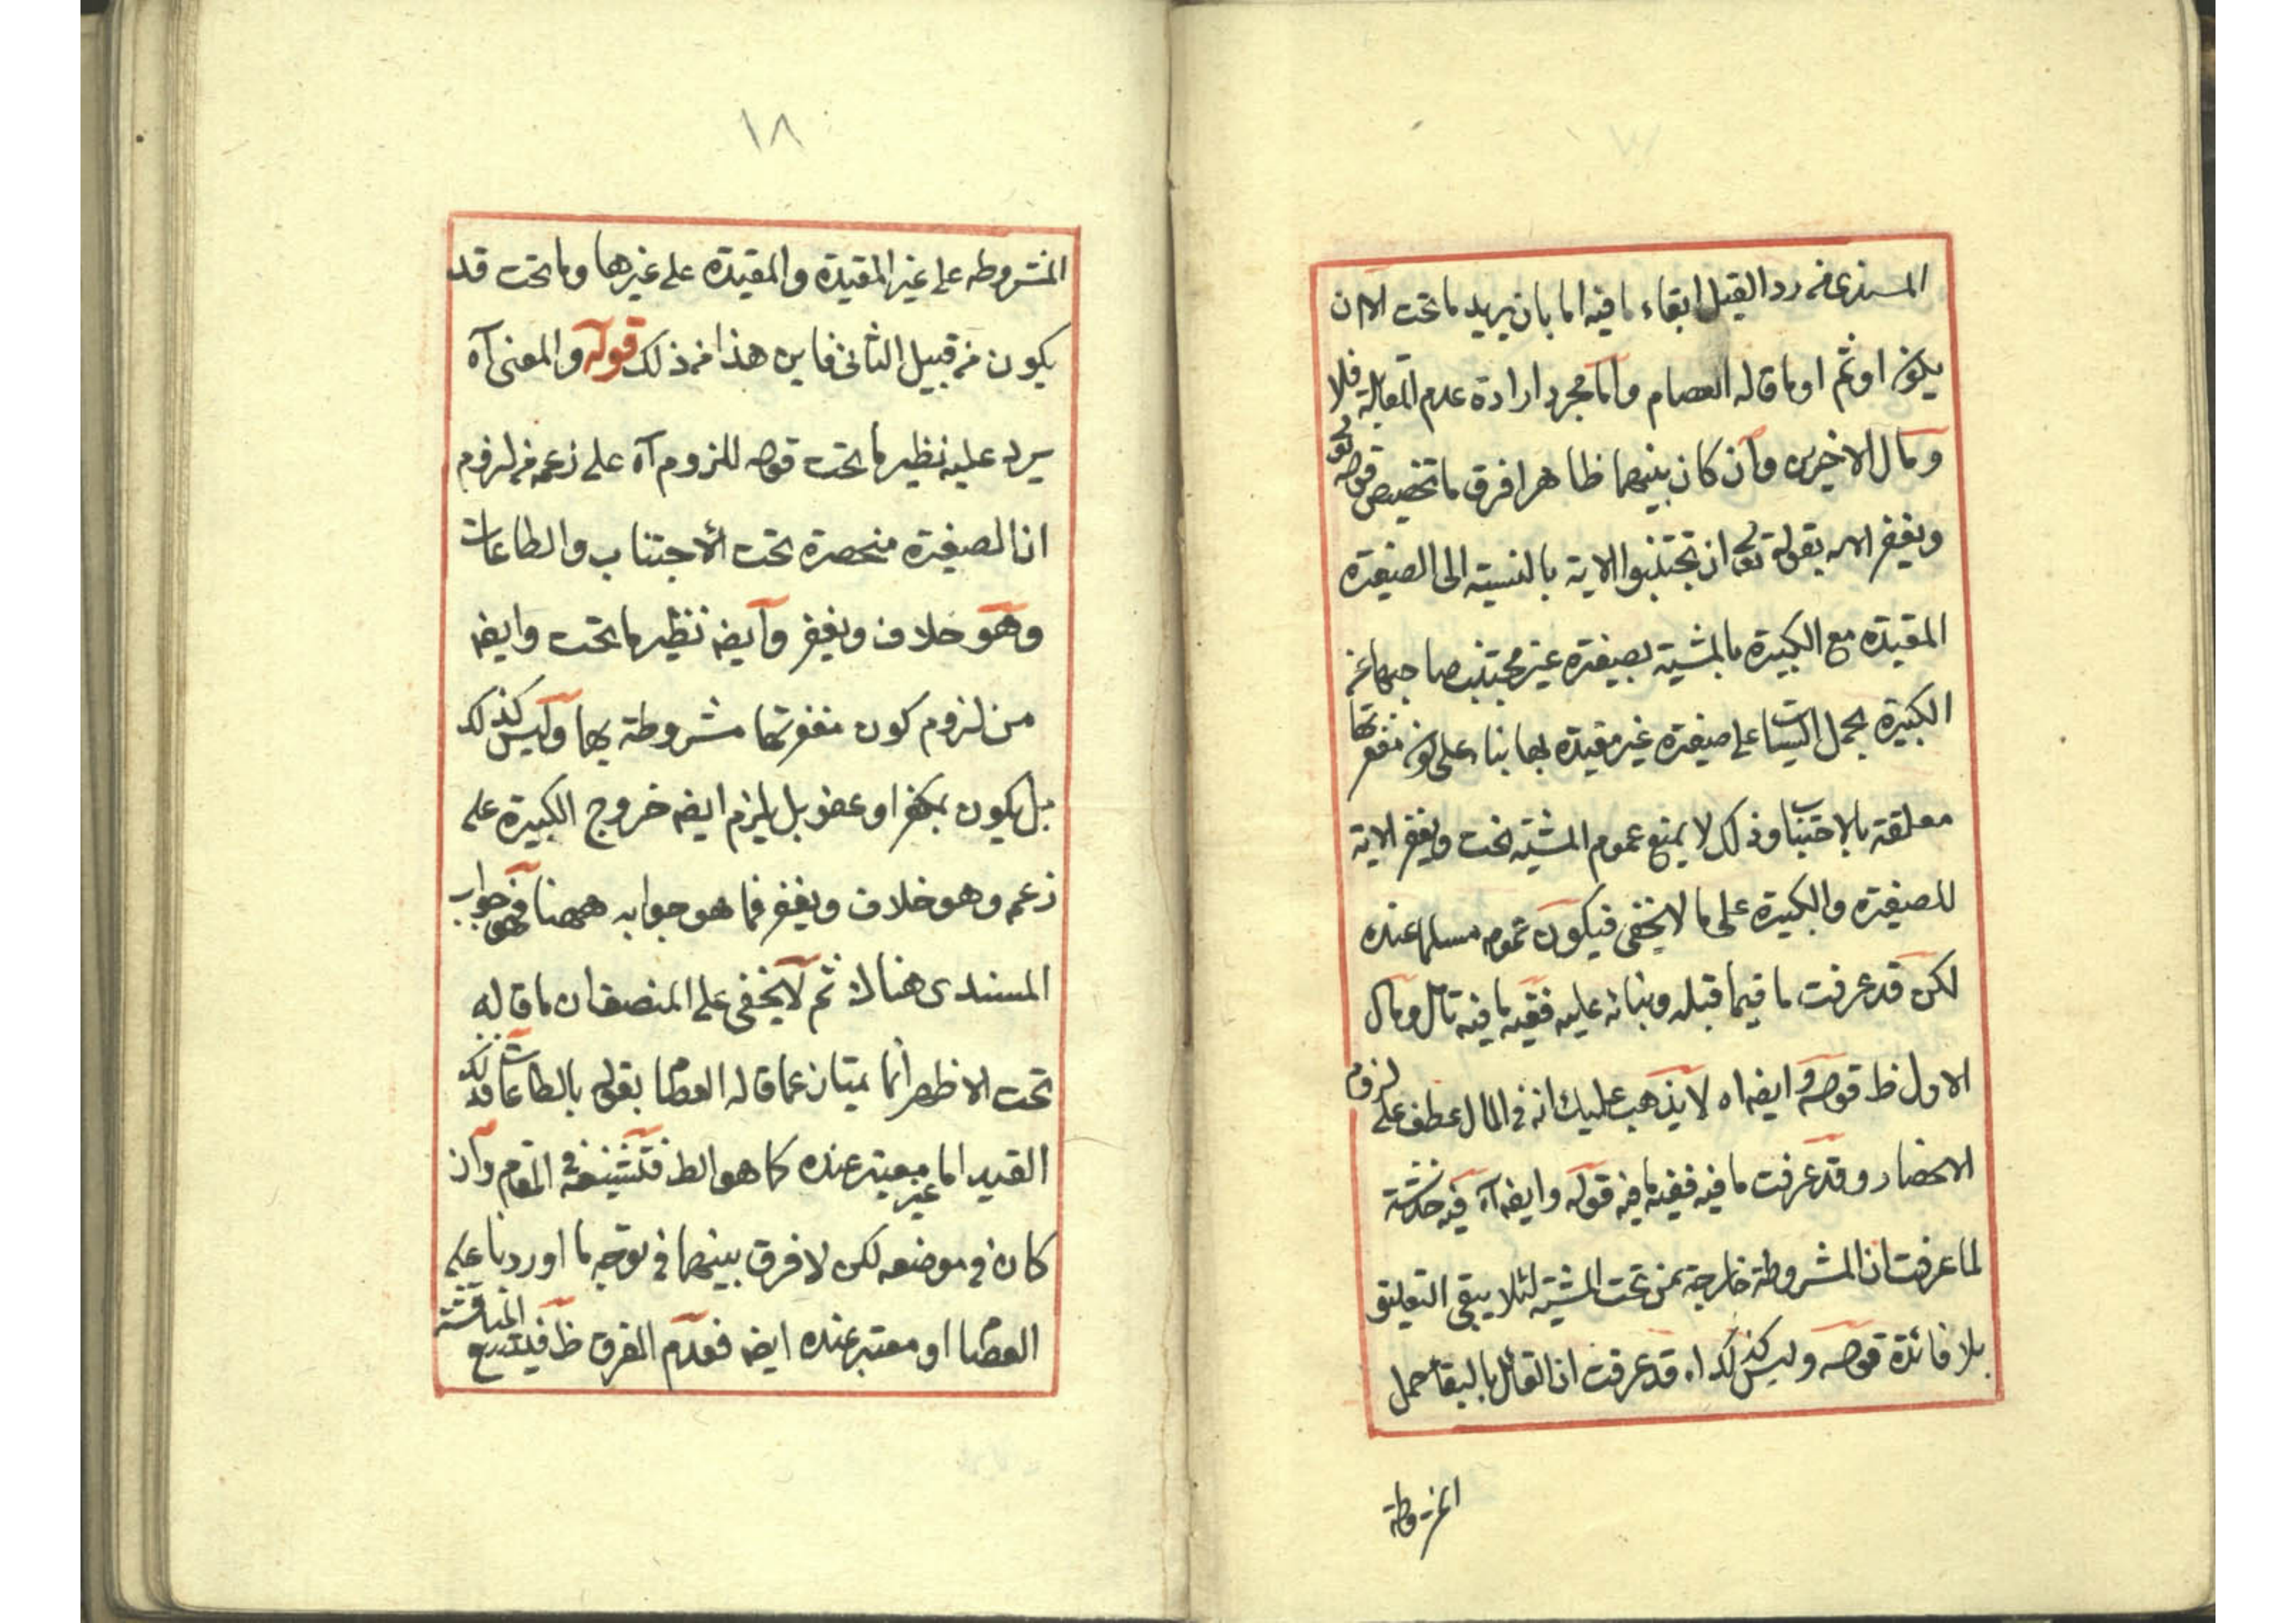 المسندى فى رد القيل ابقاء ما فيه اما بان يريد ما تحت الا ان
يكون او ثم او ما قاله العصام واما مجرد ارادة عدم المقابلة فلا
ومآل الاخيرين وان كان بينهما ظاهرا فرق ما تخصيص قوله تع
ويغفر الاية بقوله تع ان تجتنبوا الاية بالنسبته الى الصغيرة
المقيدة مع الكبيرة بالمشية بصغيرة غير مجتنب صاحبها عن
الكبيرة بحمل السيئات على صغيرة غير مقيدة بها بناء على كون مغفرتها
معلقة بالاجتناب وذلك لا يمنع عموم المشية تحت ويغفر الاية
للصغيرة والكبيرة على ما لا يخفى فيكون عمومه مسلما عنده
لكن قد عرفت ما فيما قبله وبنائه عليه ففيه ما فيه تأمل ومآل
الاول ظ قوله وايضه اه لا يذهب عليك انه فى المآل عطف على لزوم
الانحصار وقد عرفت ما فيه ففيه ما فيه قوله وايضه اه فيه خدشة
لما عرفت ان المشروطة خارجة عن تحت المشية لئلا يبقى التعليق
بلا فائدة قوله وليس كذلك اه قد عرفت ان القائل بالبقاء حمل
المشروطة
١٨
المشروطه على غير المقيدة والمقيدة على غيرها وما تحت قد
يكون من قبيل الثانى فاين هذا من ذلك قوله والمعنى آه
يرد عليه نظير ما تحت قوله للزوم آه على زعمه من لزوم
ان الصغيرة منحصرة تحت الاجتناب والطاعات
وهو خلاف ويغفر وايضه نظير ما تحت وايضه
من لزوم كون مغفرتها مشروطة بها وليس كذلك
بل يكون بمكفر او عفو بل يلزم ايضه خروج الكبيرة على
زعمه وهو خلاف ويغفر فما هو جوابه ههنا فهو جواب
المسندى هناك ثم لا يخفى على المنصف ان ما قاله
تحت الاظهر انما يمتاز عما قاله العصام بقوله بالطاعات فذلك
القيد اما غير معتبر عنده كما هو الظ فتشنيعه فى المقام وان
كان فى موضعه لكن لا فرق بينهما فى توجه ما اوردنا على
العصام او معتبر عنده ايضه فعدم الفرق ظ فيتسع المناقشة